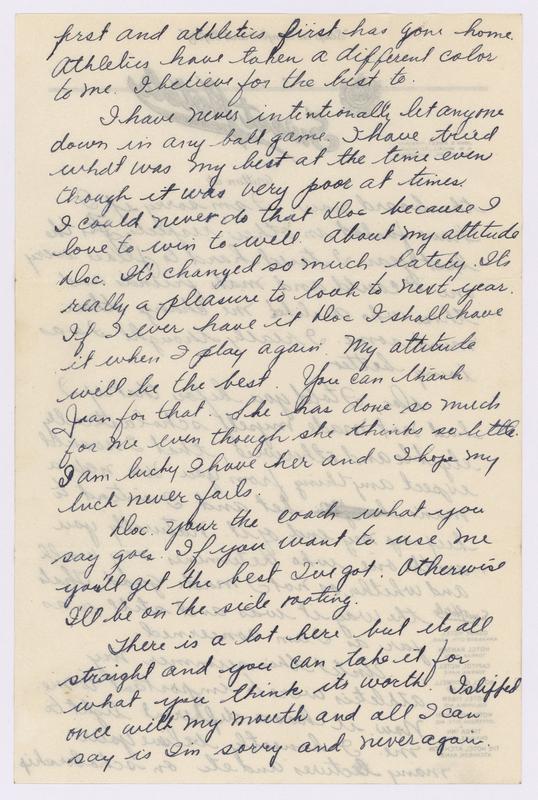 first and athletics first has gone home.
Athletics have taken a different color
to me. I believe for the best to.
I have never intentionally let anyone
down in any ball game. I have tried
what was my best at the time even
though it was very poor at times.
I could never do that Doc because I
love to win to well. About my attitude
Doc. It's changed so much lately. It's
really a pleasure to look to next year.
If I ever have it Doc I shall have
it when I play again. My attitude
will be the best. You can thank
Jean for that. She has done so much
for me even though she thinks so little.
I am lucky I have her and I hope my
luck never fails.
Doc. Your the coach what you
say goes. If you want to use me
you'll get the best I've got. Otherwise
I'll be on the side rooting.
There is a lot here but its all
straight and you can take it for
what you think its worth. I slipped
once with my mouth and all I can
say is I'm sorry and never again.